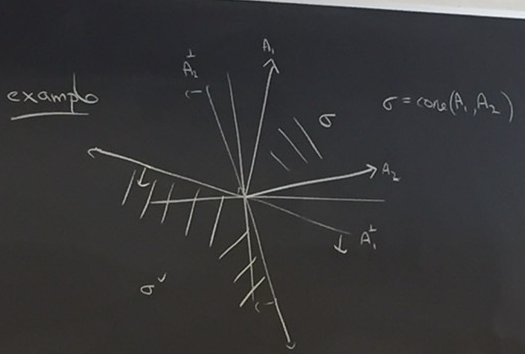 example
A₂^⊥
A₁
σ
σ = cone(A₁, A₂)
A₂
A₁^⊥
σ^∨